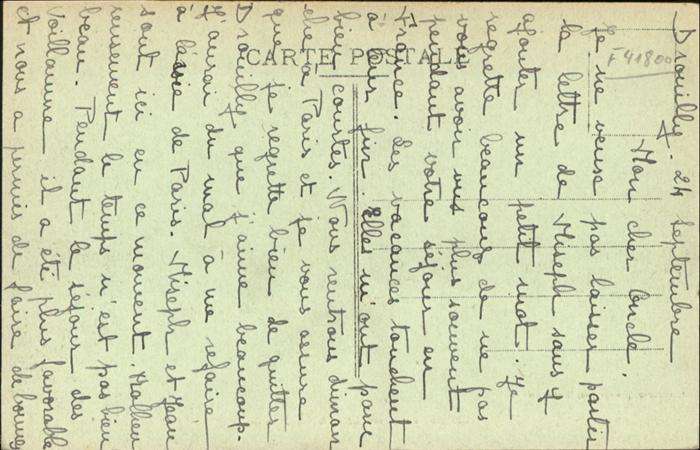 CARTE POSTALE
F 41800
Drouilly. 24 Septembre
Mon cher Oncle.
Je ne veux pas laisser partir
la lettre de Miseph sans y
ajouter un petit mot. Je
regrette beaucoup de ne pas
vous avoir vus plus souvent
pendant votre séjour en
France. Les vacances touchent
à leur fin Elles m'ont paru
bien courtes. Nous rentrons diman
che à Paris et je vous assure
que je regrette bien de quitter
Drouilly que j'aime beaucoup.
J'aurai du mal à me refaire
à la vie de Paris. Miseph et Jean
sont ici en ce moment. Malheu
reusement le temps n'est pas bien
beau. Pendant le séjour des
Voillaume il a été plus favorable
et nous a permis de faire de bonnes